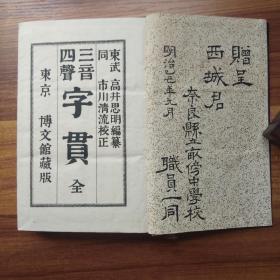 贈呈
西城君
奈良縣立畝傍中學校
職員一同
明治年九月
東武 高井思明編纂
同 市川清流校正
三音四聲 字貫 全
東京 博文館藏版